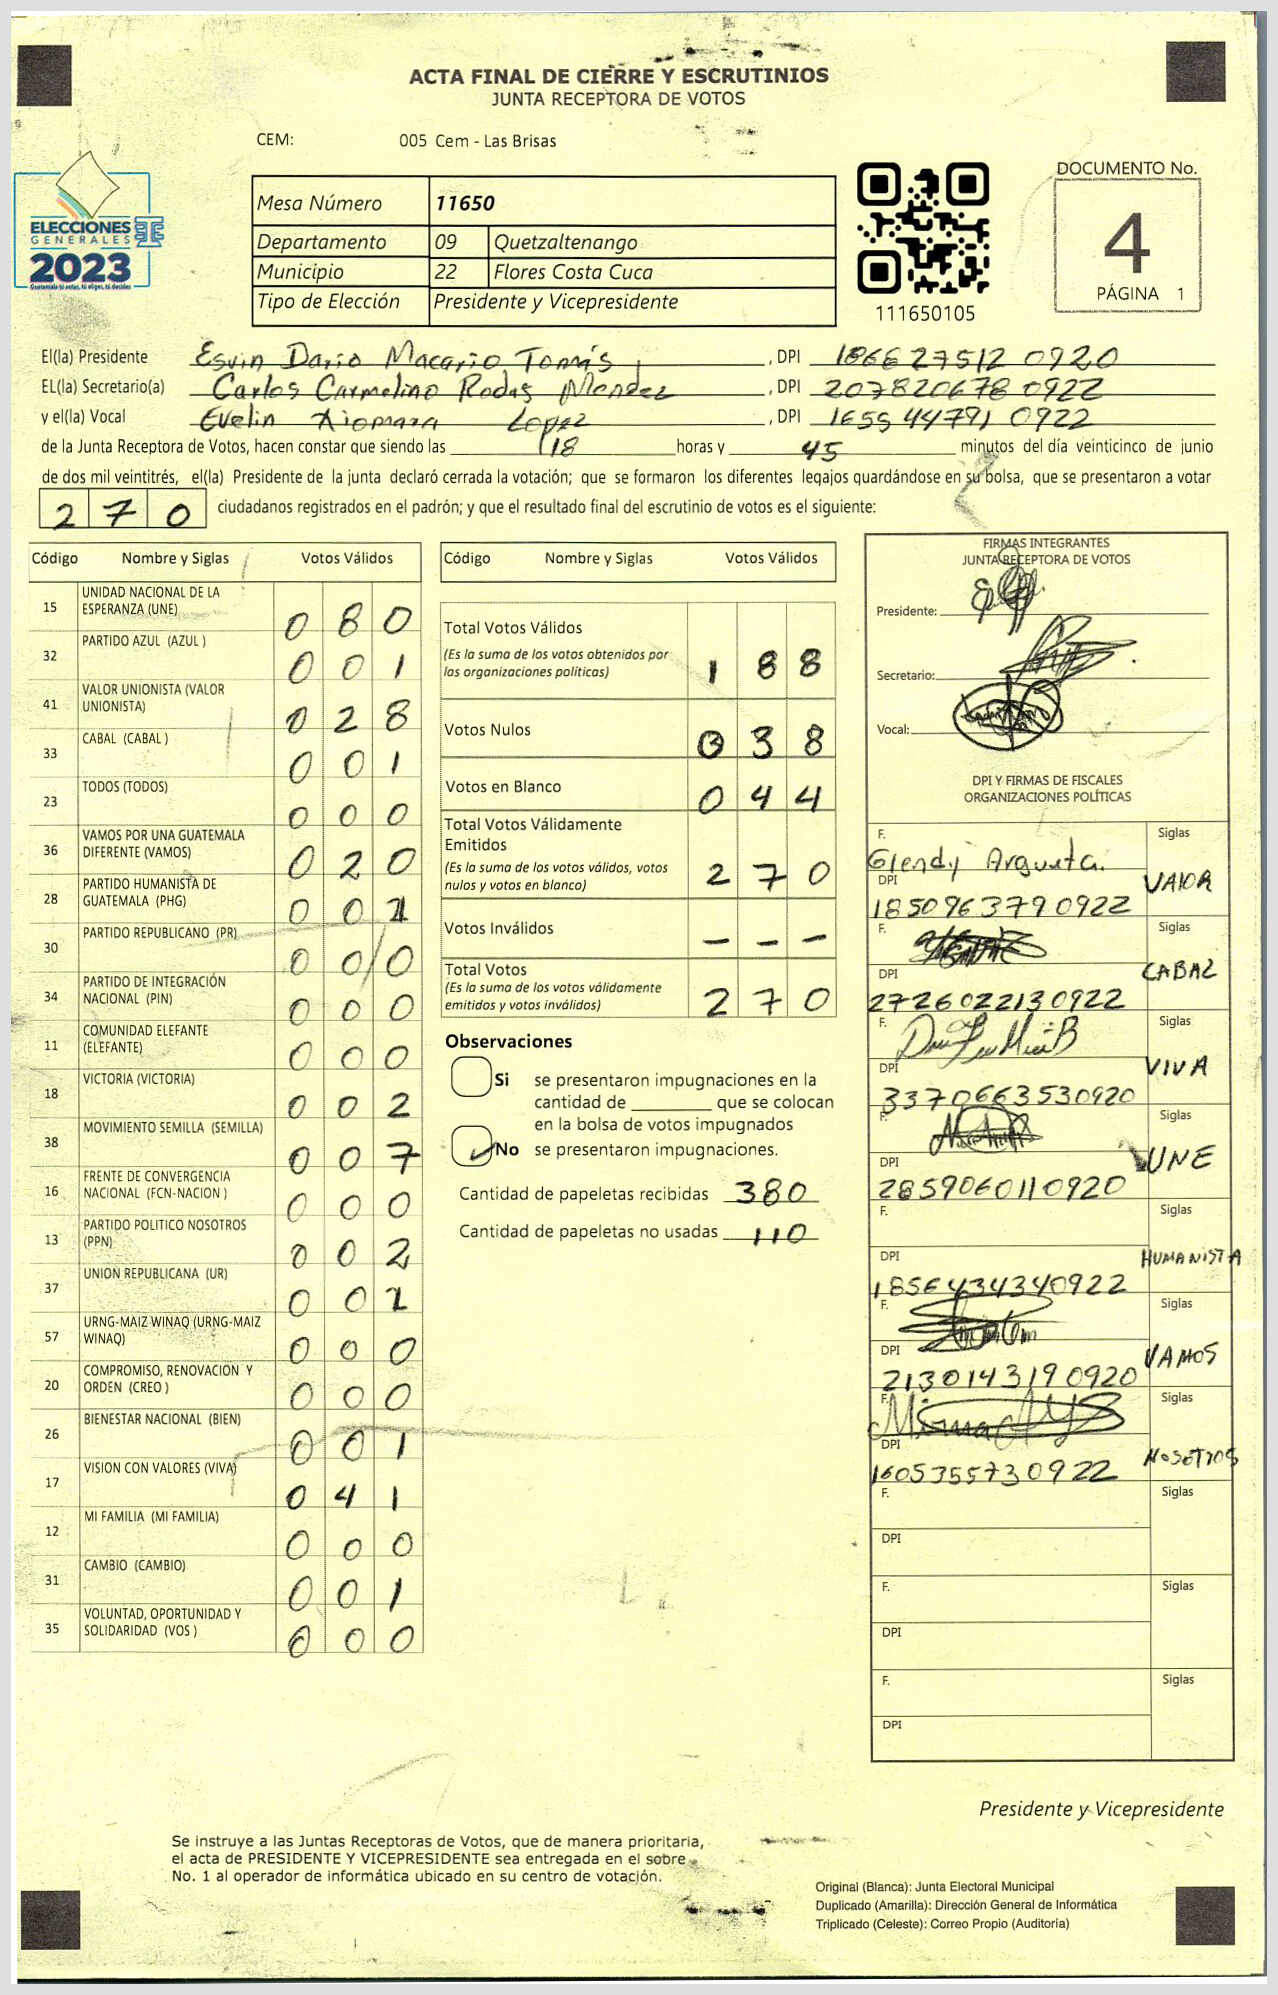 ACTA FINAL DE CIERRE Y ESCRUTINIOS
JUNTA RECEPTORA DE VOTOS
CEM: 005 Cem - Las Brisas
ELECCIONES
GENERALES
2023
Guatemala tú votas, tú eliges, tú decides
Mesa Número 11650
Departamento 09 Quetzaltenango
Municipio 22 Flores Costa Cuca
Tipo de Elección Presidente y Vicepresidente
111650105
DOCUMENTO No.
4
PÁGINA 1
El(la) Presidente Esvin Dario Macario Tomás , DPI 1866 27512 0920
EL(la) Secretario(a) Carlos Carmelino Rodas Mendez , DPI 207820678 0922
y el(la) Vocal Evelin Xiomara Lopez , DPI 1655 44791 0922
de la Junta Receptora de Votos, hacen constar que siendo las 18 horas y 45 minutos del día veinticinco de junio
de dos mil veintitrés, el(la) Presidente de la junta declaró cerrada la votación; que se formaron los diferentes legajos guardándose en su bolsa, que se presentaron a votar
270 ciudadanos registrados en el padrón; y que el resultado final del escrutinio de votos es el siguiente:
Código Nombre y Siglas Votos Válidos
15 UNIDAD NACIONAL DE LA ESPERANZA (UNE) 0 8 0
32 PARTIDO AZUL (AZUL ) 0 0 1
41 VALOR UNIONISTA (VALOR UNIONISTA) 0 2 8
33 CABAL (CABAL ) 0 0 1
23 TODOS (TODOS) 0 0 0
36 VAMOS POR UNA GUATEMALA DIFERENTE (VAMOS) 0 2 0
28 PARTIDO HUMANISTA DE GUATEMALA (PHG) 0 0 1
30 PARTIDO REPUBLICANO (PR) 0 0 0
34 PARTIDO DE INTEGRACIÓN NACIONAL (PIN) 0 0 0
11 COMUNIDAD ELEFANTE (ELEFANTE) 0 0 0
18 VICTORIA (VICTORIA) 0 0 2
38 MOVIMIENTO SEMILLA (SEMILLA) 0 0 7
16 FRENTE DE CONVERGENCIA NACIONAL (FCN-NACION ) 0 0 0
13 PARTIDO POLITICO NOSOTROS (PPN) 0 0 2
37 UNION REPUBLICANA (UR) 0 0 1
57 URNG-MAIZ WINAQ (URNG-MAIZ WINAQ) 0 0 0
20 COMPROMISO, RENOVACION Y ORDEN (CREO ) 0 0 0
26 BIENESTAR NACIONAL (BIEN) 0 0 1
17 VISION CON VALORES (VIVA) 0 4 1
12 MI FAMILIA (MI FAMILIA) 0 0 0
31 CAMBIO (CAMBIO) 0 0 1
35 VOLUNTAD, OPORTUNIDAD Y SOLIDARIDAD (VOS ) 0 0 0
Código Nombre y Siglas Votos Válidos
Total Votos Válidos
(Es la suma de los votos obtenidos por
las organizaciones políticas) 1 8 8
Votos Nulos 0 3 8
Votos en Blanco 0 4 4
Total Votos Válidamente
Emitidos
(Es la suma de los votos válidos, votos
nulos y votos en blanco) 2 7 0
Votos Inválidos - - -
Total Votos
(Es la suma de los votos válidamente
emitidos y votos inválidos) 2 7 0
Observaciones
Si se presentaron impugnaciones en la
cantidad de ________ que se colocan
en la bolsa de votos impugnados
No se presentaron impugnaciones.
Cantidad de papeletas recibidas 380
Cantidad de papeletas no usadas 110
FIRMAS INTEGRANTES
JUNTA RECEPTORA DE VOTOS
Presidente:
Secretario:
Vocal:
DPI Y FIRMAS DE FISCALES
ORGANIZACIONES POLÍTICAS
F. Glendy Argueta. Siglas
DPI 1850963790922 VALOR
F. Siglas
DPI 2726022130922 CABAL
F. Siglas
DPI 3370663530920 VIVA
F. Siglas
DPI 2859060110920 UNE
F. Siglas
DPI 1856434340922 HUMANISTA
F. Siglas
DPI 2130143190920 VAMOS
F. Siglas
DPI 1605355730922 NOSOTROS
F. Siglas
DPI
F. Siglas
DPI
F. Siglas
DPI
Presidente y Vicepresidente
Se instruye a las Juntas Receptoras de Votos, que de manera prioritaria,
el acta de PRESIDENTE Y VICEPRESIDENTE sea entregada en el sobre
No. 1 al operador de informática ubicado en su centro de votación.
Original (Blanca): Junta Electoral Municipal
Duplicado (Amarilla): Dirección General de Informática
Triplicado (Celeste): Correo Propio (Auditoría)